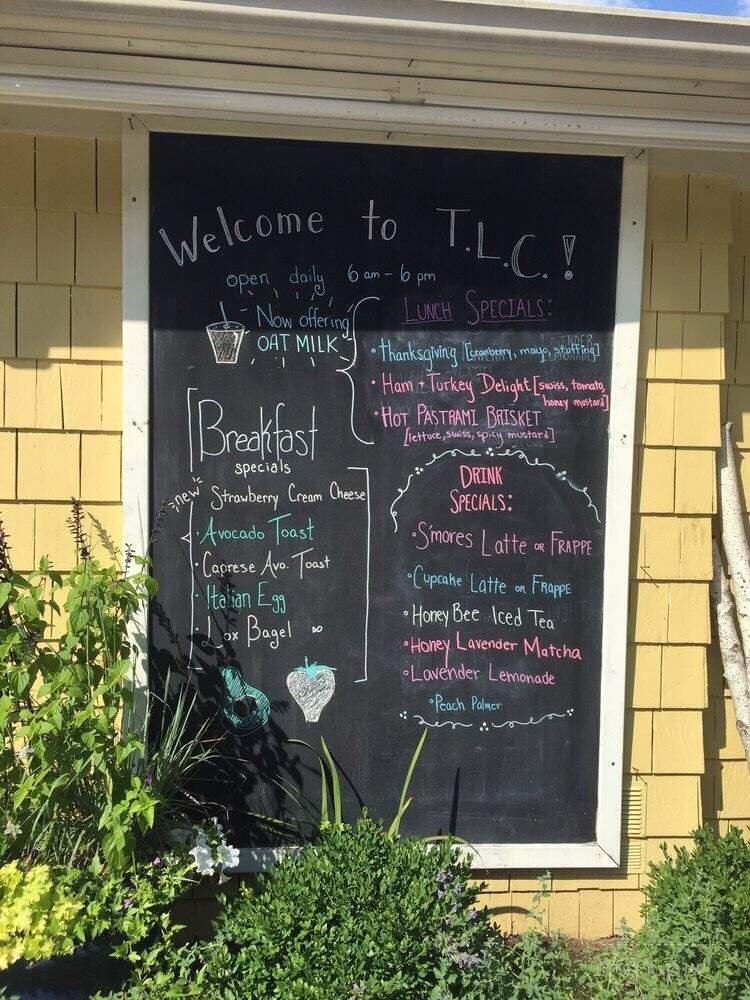 Welcome to T.L.C.!
open daily 6 am - 6 pm
Now offering
OAT MILK
Breakfast
specials
new Strawberry Cream Cheese
· Avocado Toast
· Caprese Avo. Toast
· Italian Egg
· Lox Bagel
LUNCH SPECIALS:
• Thanksgiving [cranberry, mayo, stuffing]
• Ham + Turkey Delight [swiss, tomato,
honey mustard]
• HOT PASTRAMI BRISKET
[lettuce, swiss, spicy mustard]
DRINK
SPECIALS:
• S'mores Latte OR FRAPPE
• Cupcake Latte OR FRAPPE
• Honey Bee Iced Tea
• Honey Lavender Matcha
• Lavender Lemonade
• Peach Palmer